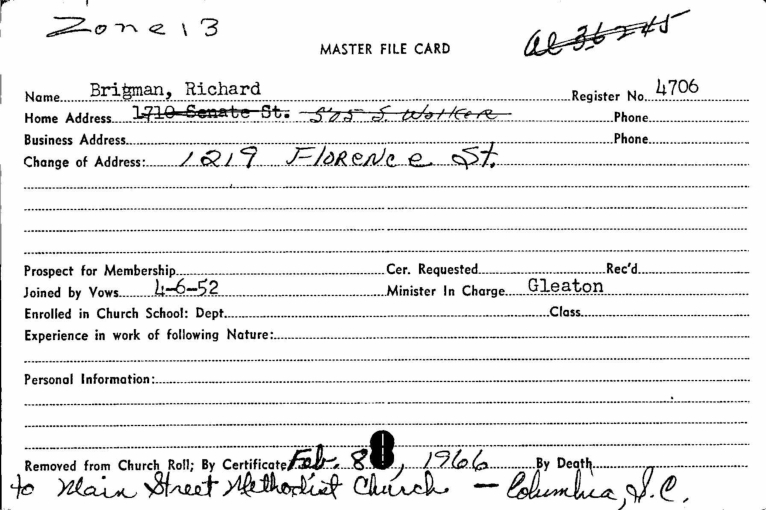 Zone 13
al 36245
MASTER FILE CARD
Name Brigman, Richard Register No. 4706
Home Address 1710 Senate St. 505 S. Walker Phone
Business Address Phone
Change of Address: 1219 Florence St.
Prospect for Membership Cer. Requested Rec'd
Joined by Vows 4-6-52 Minister In Charge Gleaton
Enrolled in Church School: Dept. Class
Experience in work of following Nature:
Personal Information:
Removed from Church Roll; By Certificate Feb. 8, 1966 By Death
to Main Street Methodist Church — Columbia, S.C.